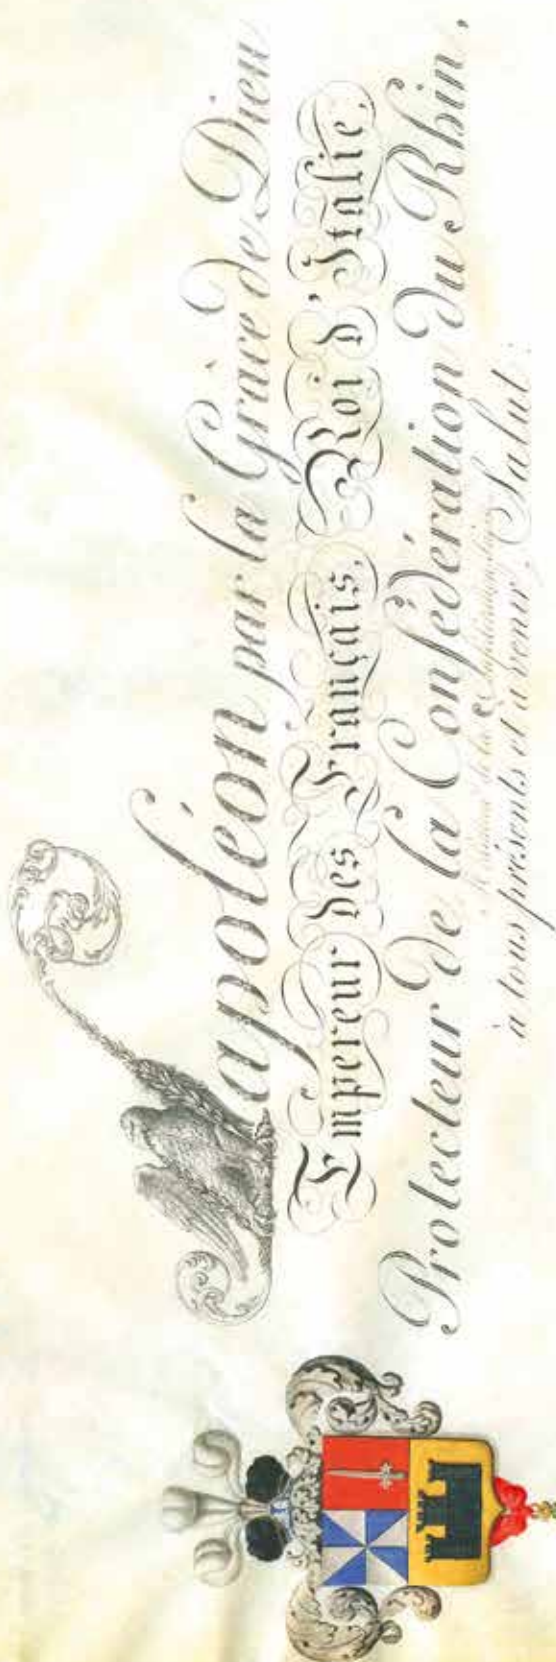 Napoléon par la Grâce de Dieu
Empereur des Français, Roi d'Italie,
Protecteur de la Confédération du Rhin,
Médiateur de la Confédération
à tous présents et à venir, Salut: